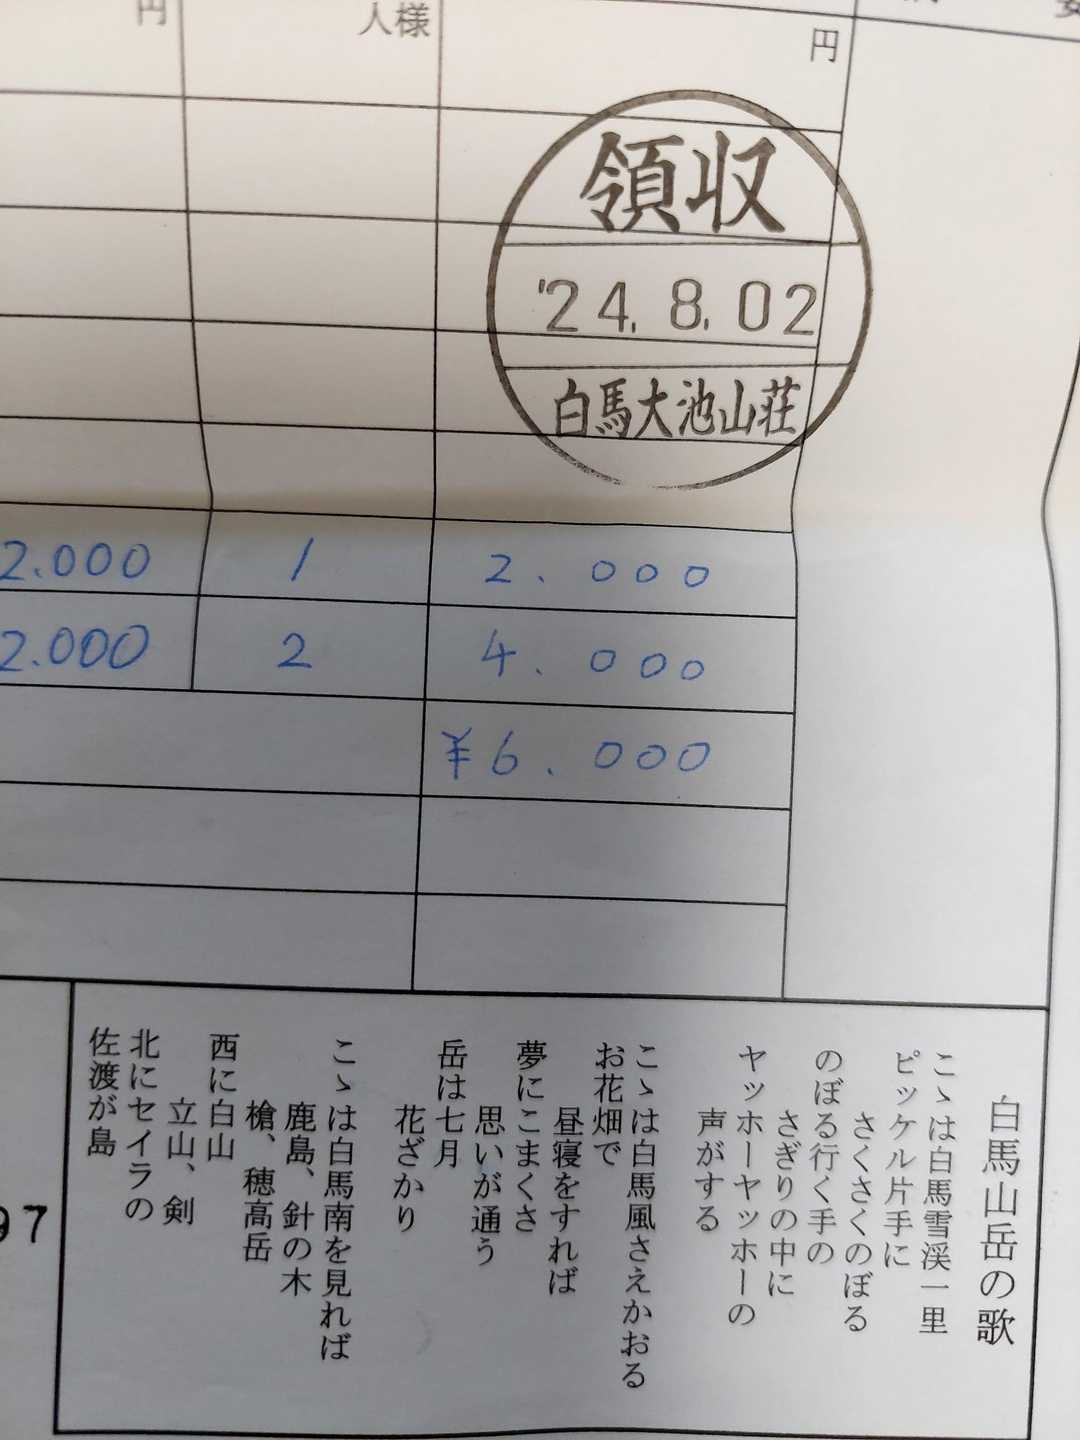 円
人様
円
領収
'24.8.02
白馬大池山荘
2.000 1 2.000
2.000 2 4.000
¥6.000
97
白馬山岳の歌
こゝは白馬雪渓一里
ピッケル片手に
さくさくのぼる
のぼる行く手の
さぎりの中に
ヤッホーヤッホーの
声がする
こゝは白馬風さえかおる
お花畑で
昼寝をすれば
夢にこまくさ
思いが通う
岳は七月
花ざかり
こゝは白馬南を見れば
鹿島、針の木
槍、穂高岳
西に白山
立山、剣
北にセイラの
佐渡が島